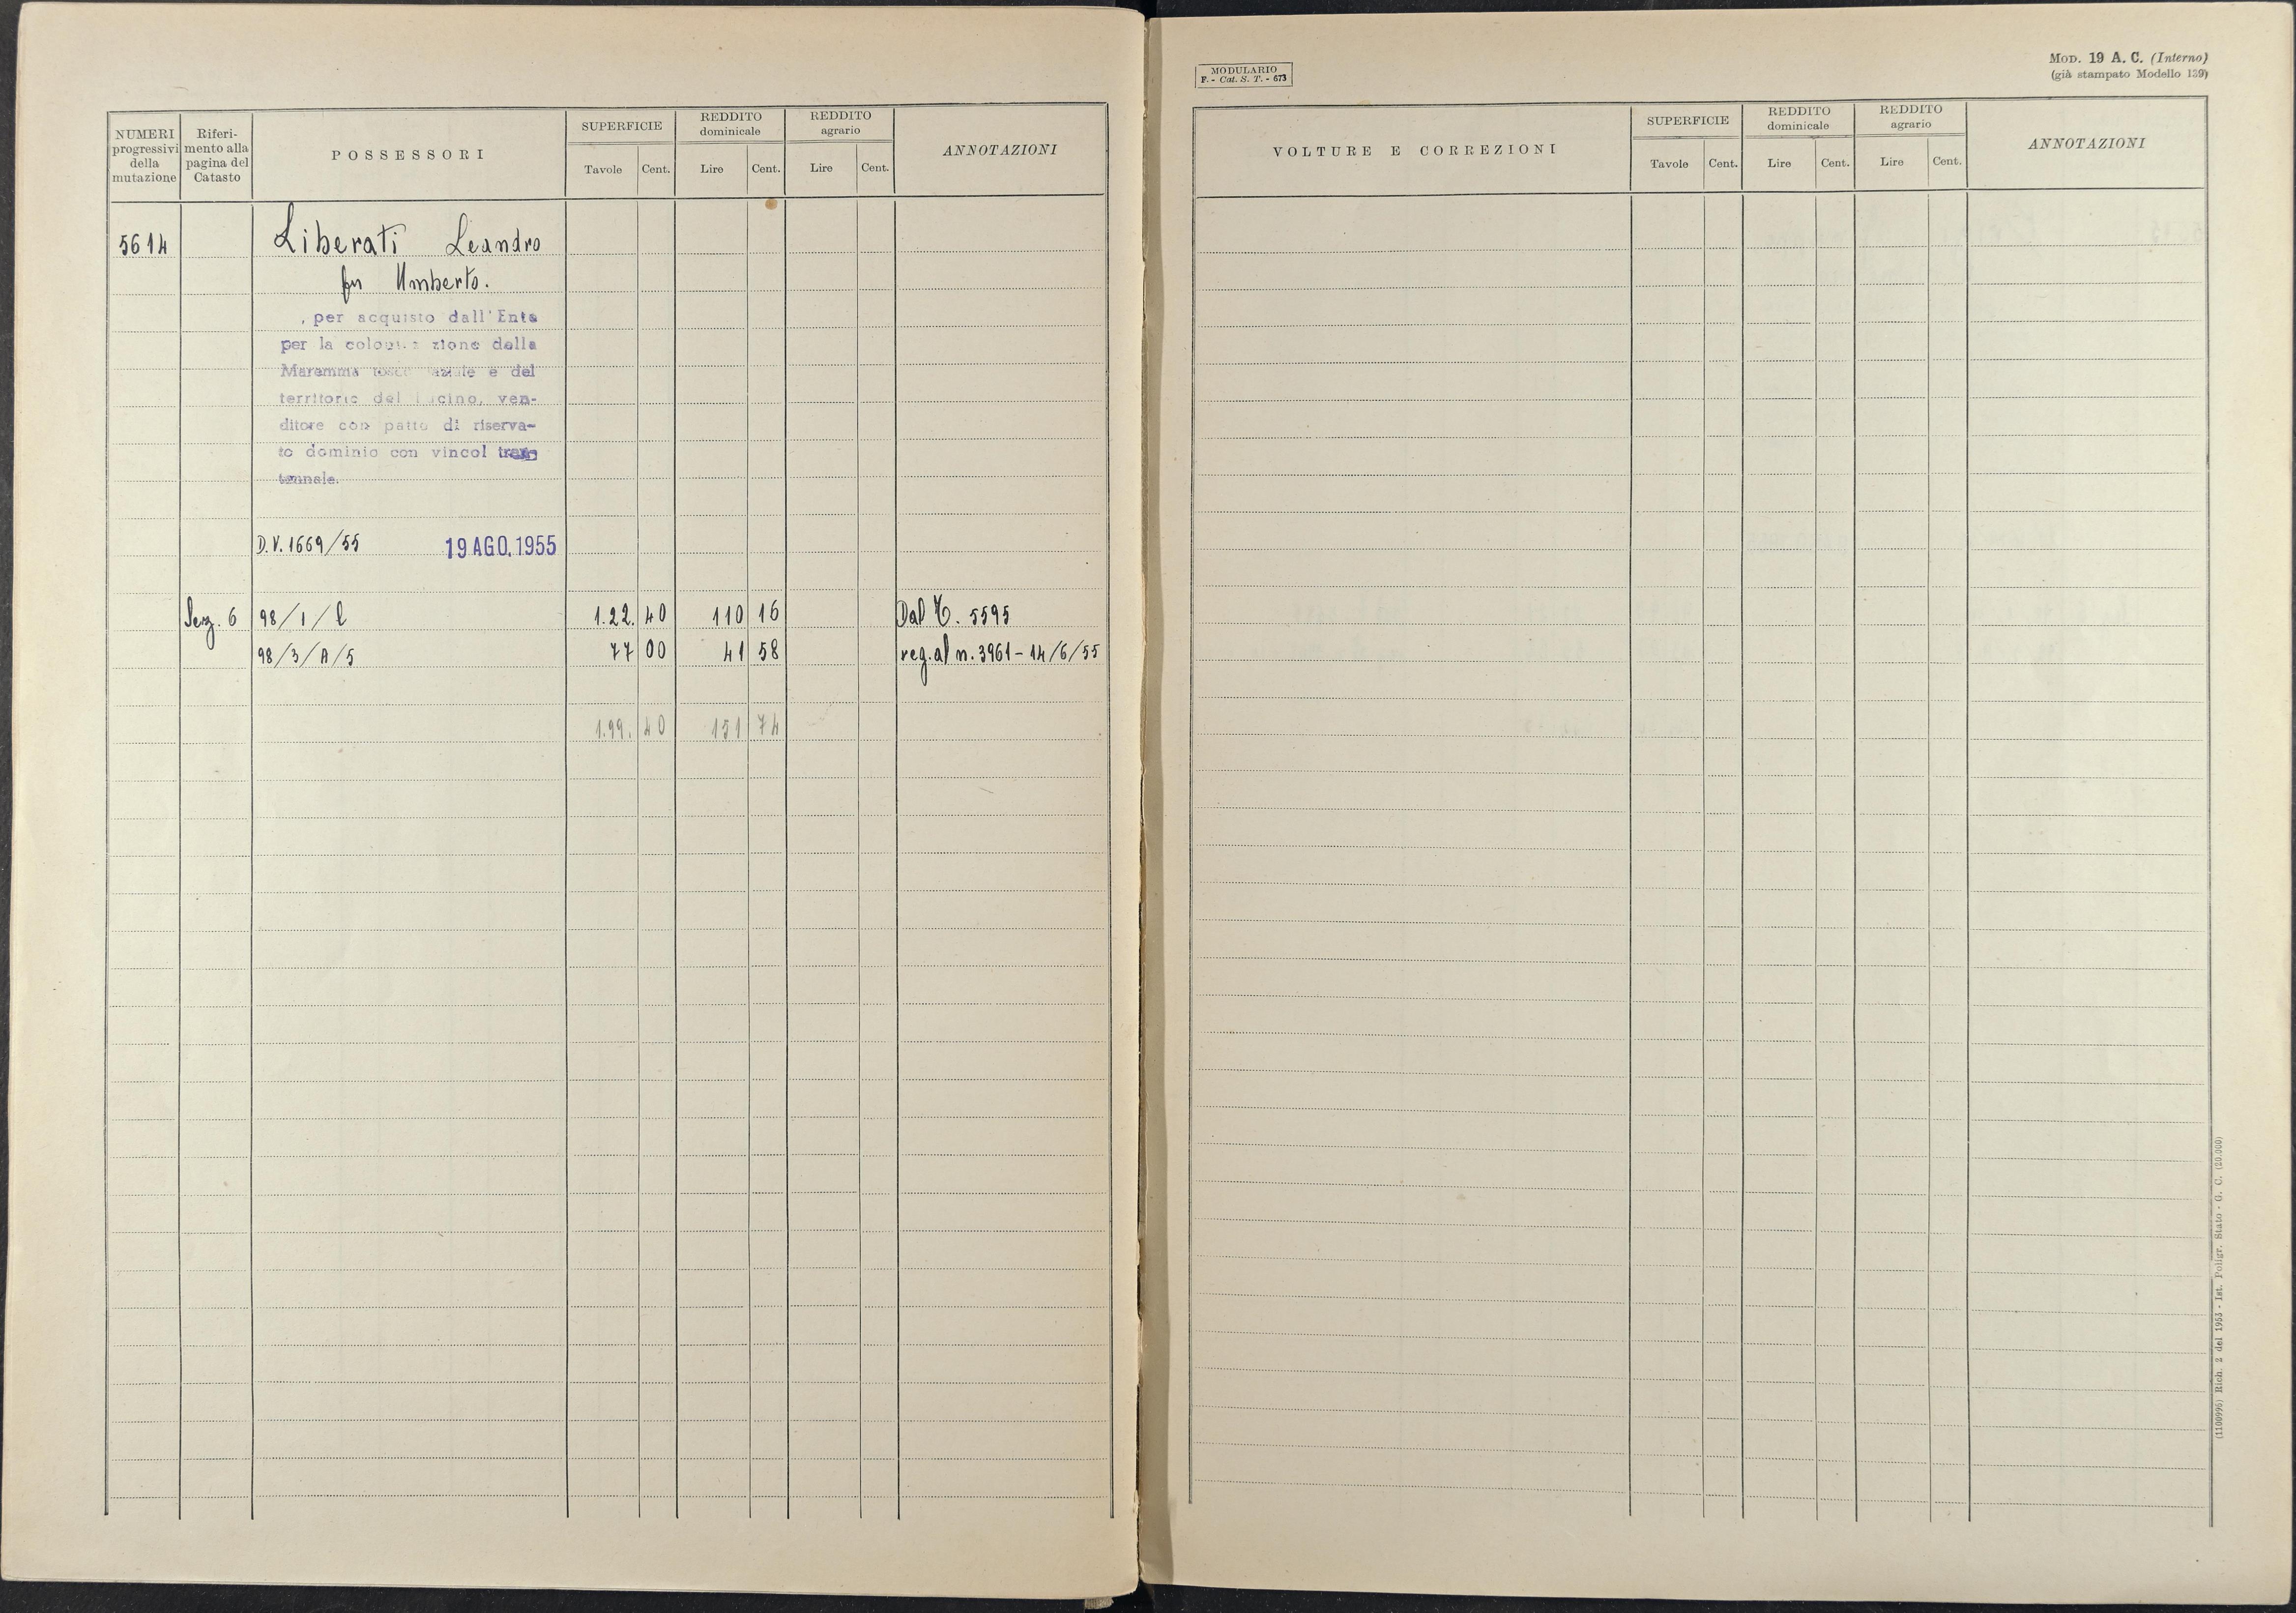 NUMERI progressivi della mutazione
Riferi-
mento alla
pagina del
Catasto
POSSESSORI
SUPERFICIE
Tavole Cent.
REDDITO
dominicale
Lire Cent.
REDDITO
agrario
Lire Cent.
ANNOTAZIONI
5614 Liberati Leandro
fu Umberto.
, per acquisto dall'Ente
per la colo zione della
Maremma e del
territorio del cino, ven-
ditore con patto di riserva-
to dominio con vincol
D.V. 1669/55 19 AGO. 1955
Sez. 6 98/1/l 1.22. 40 110 16 Dal T. 5595
98/3/A/5 77 00 41 58 reg. al n. 3961 - 14/6/55
1.99. 40 151 74
MODULARIO
F. - Cat. S. T. - 673
MOD. 19 A. C. (Interno)
(già stampato Modello 139)
VOLTURE E CORREZIONI
SUPERFICIE
Tavole Cent.
REDDITO
dominicale
Lire Cent.
REDDITO
agrario
Lire Cent.
ANNOTAZIONI
(1100996) Rich. 2 del 1953 - Ist. Poligr. Stato - G. C. (20.000)